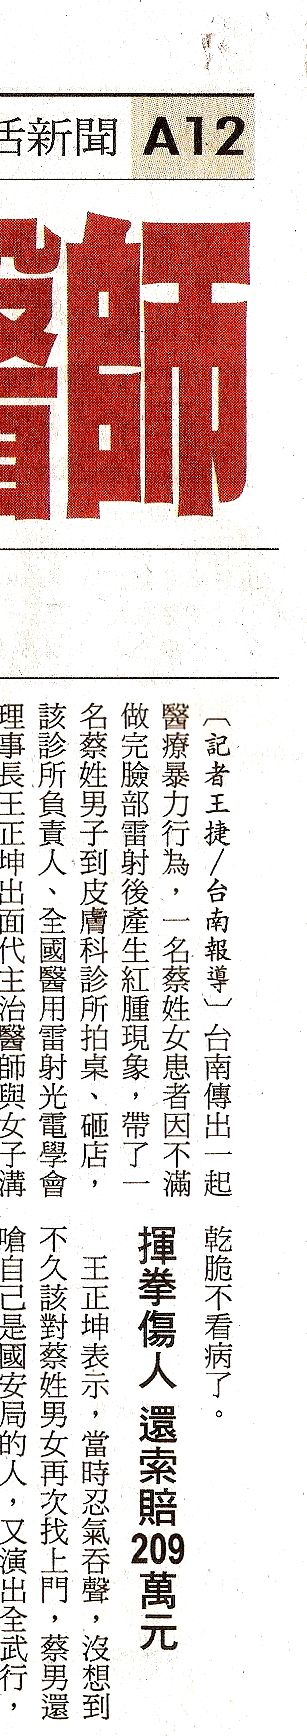 活新聞 A12
醫師
〔記者王捷／台南報導〕台南傳出一起
醫療暴力行為，一名蔡姓女患者因不滿
做完臉部雷射後產生紅腫現象，帶了一
名蔡姓男子到皮膚科診所拍桌、砸店，
該診所負責人、全國醫用雷射光電學會
理事長王正坤出面代主治醫師與女子溝
乾脆不看病了。
揮拳傷人 還索賠209萬元
王正坤表示，當時忍氣吞聲，沒想到
不久該對蔡姓男女再次找上門，蔡男還
嗆自己是國安局的人，又演出全武行，